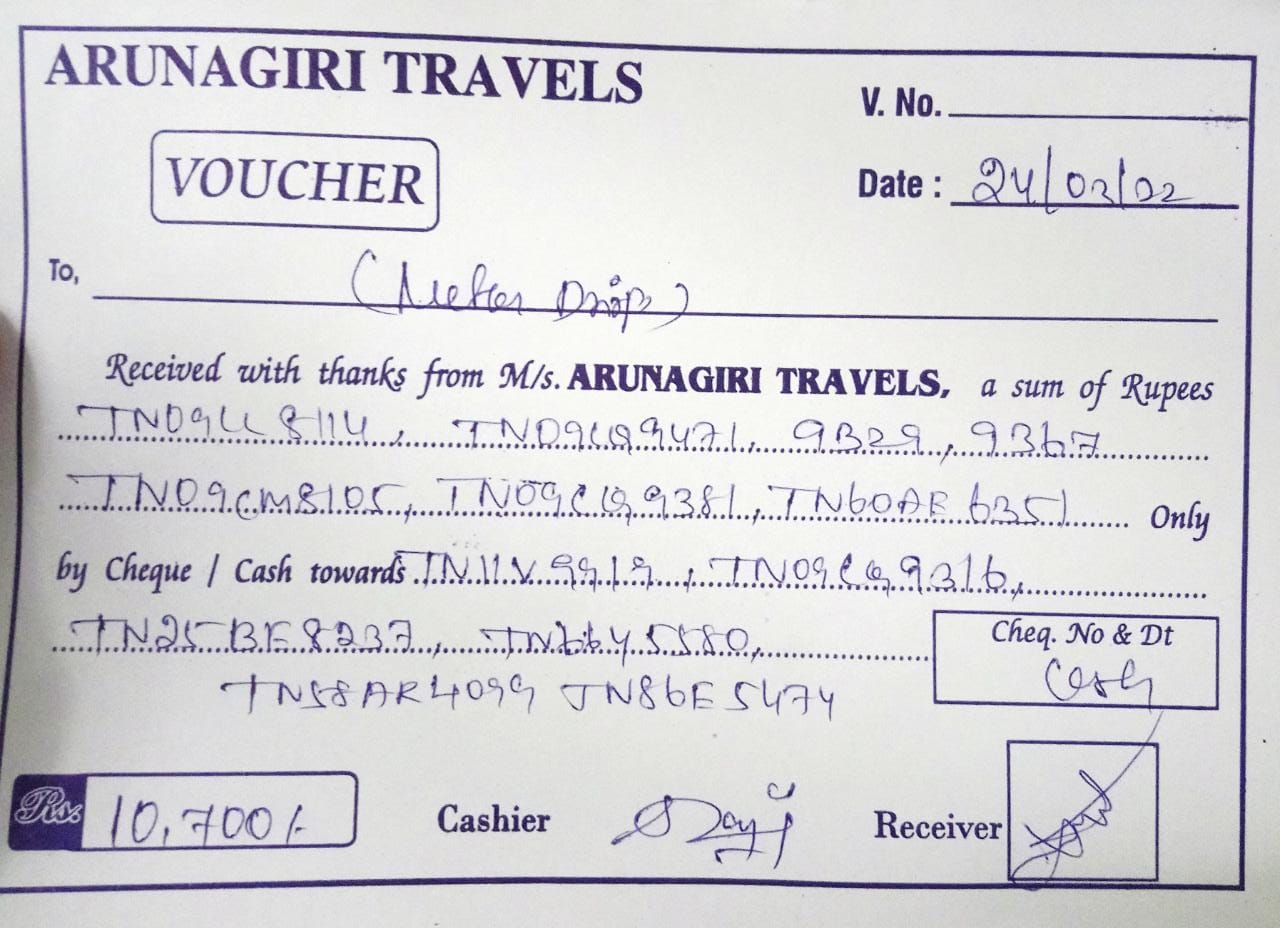 ARUNAGIRI TRAVELS
V. No.
VOUCHER
Date : 24/02/22
To, (Meter Drop)
Received with thanks from M/s. ARUNAGIRI TRAVELS, a sum of Rupees
TN09CL8114, TN09CQ9471, 9329, 9367
TN09CM8105, TN09CQ9381, TN60AE6351 Only
by Cheque / Cash towards TN11V9919, TN09CQ9316,
TN25BE8237, TN66Y5580,
Cheq. No & Dt
Cash
TN58AR4099 TN86E5474
Rs. 10,700/-
Cashier
Receiver